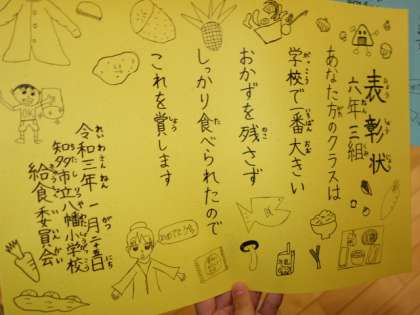 表彰状
六年三組
あなた方のクラスは
学校で一番大きい
おかずを残さず
しっかり食べられたので
これを賞します
令和三年一月二十五日
知多市立八幡小学校
給食委員会